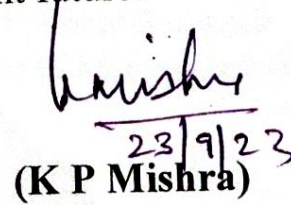 kmishra
23/9/23
(K P Mishra)